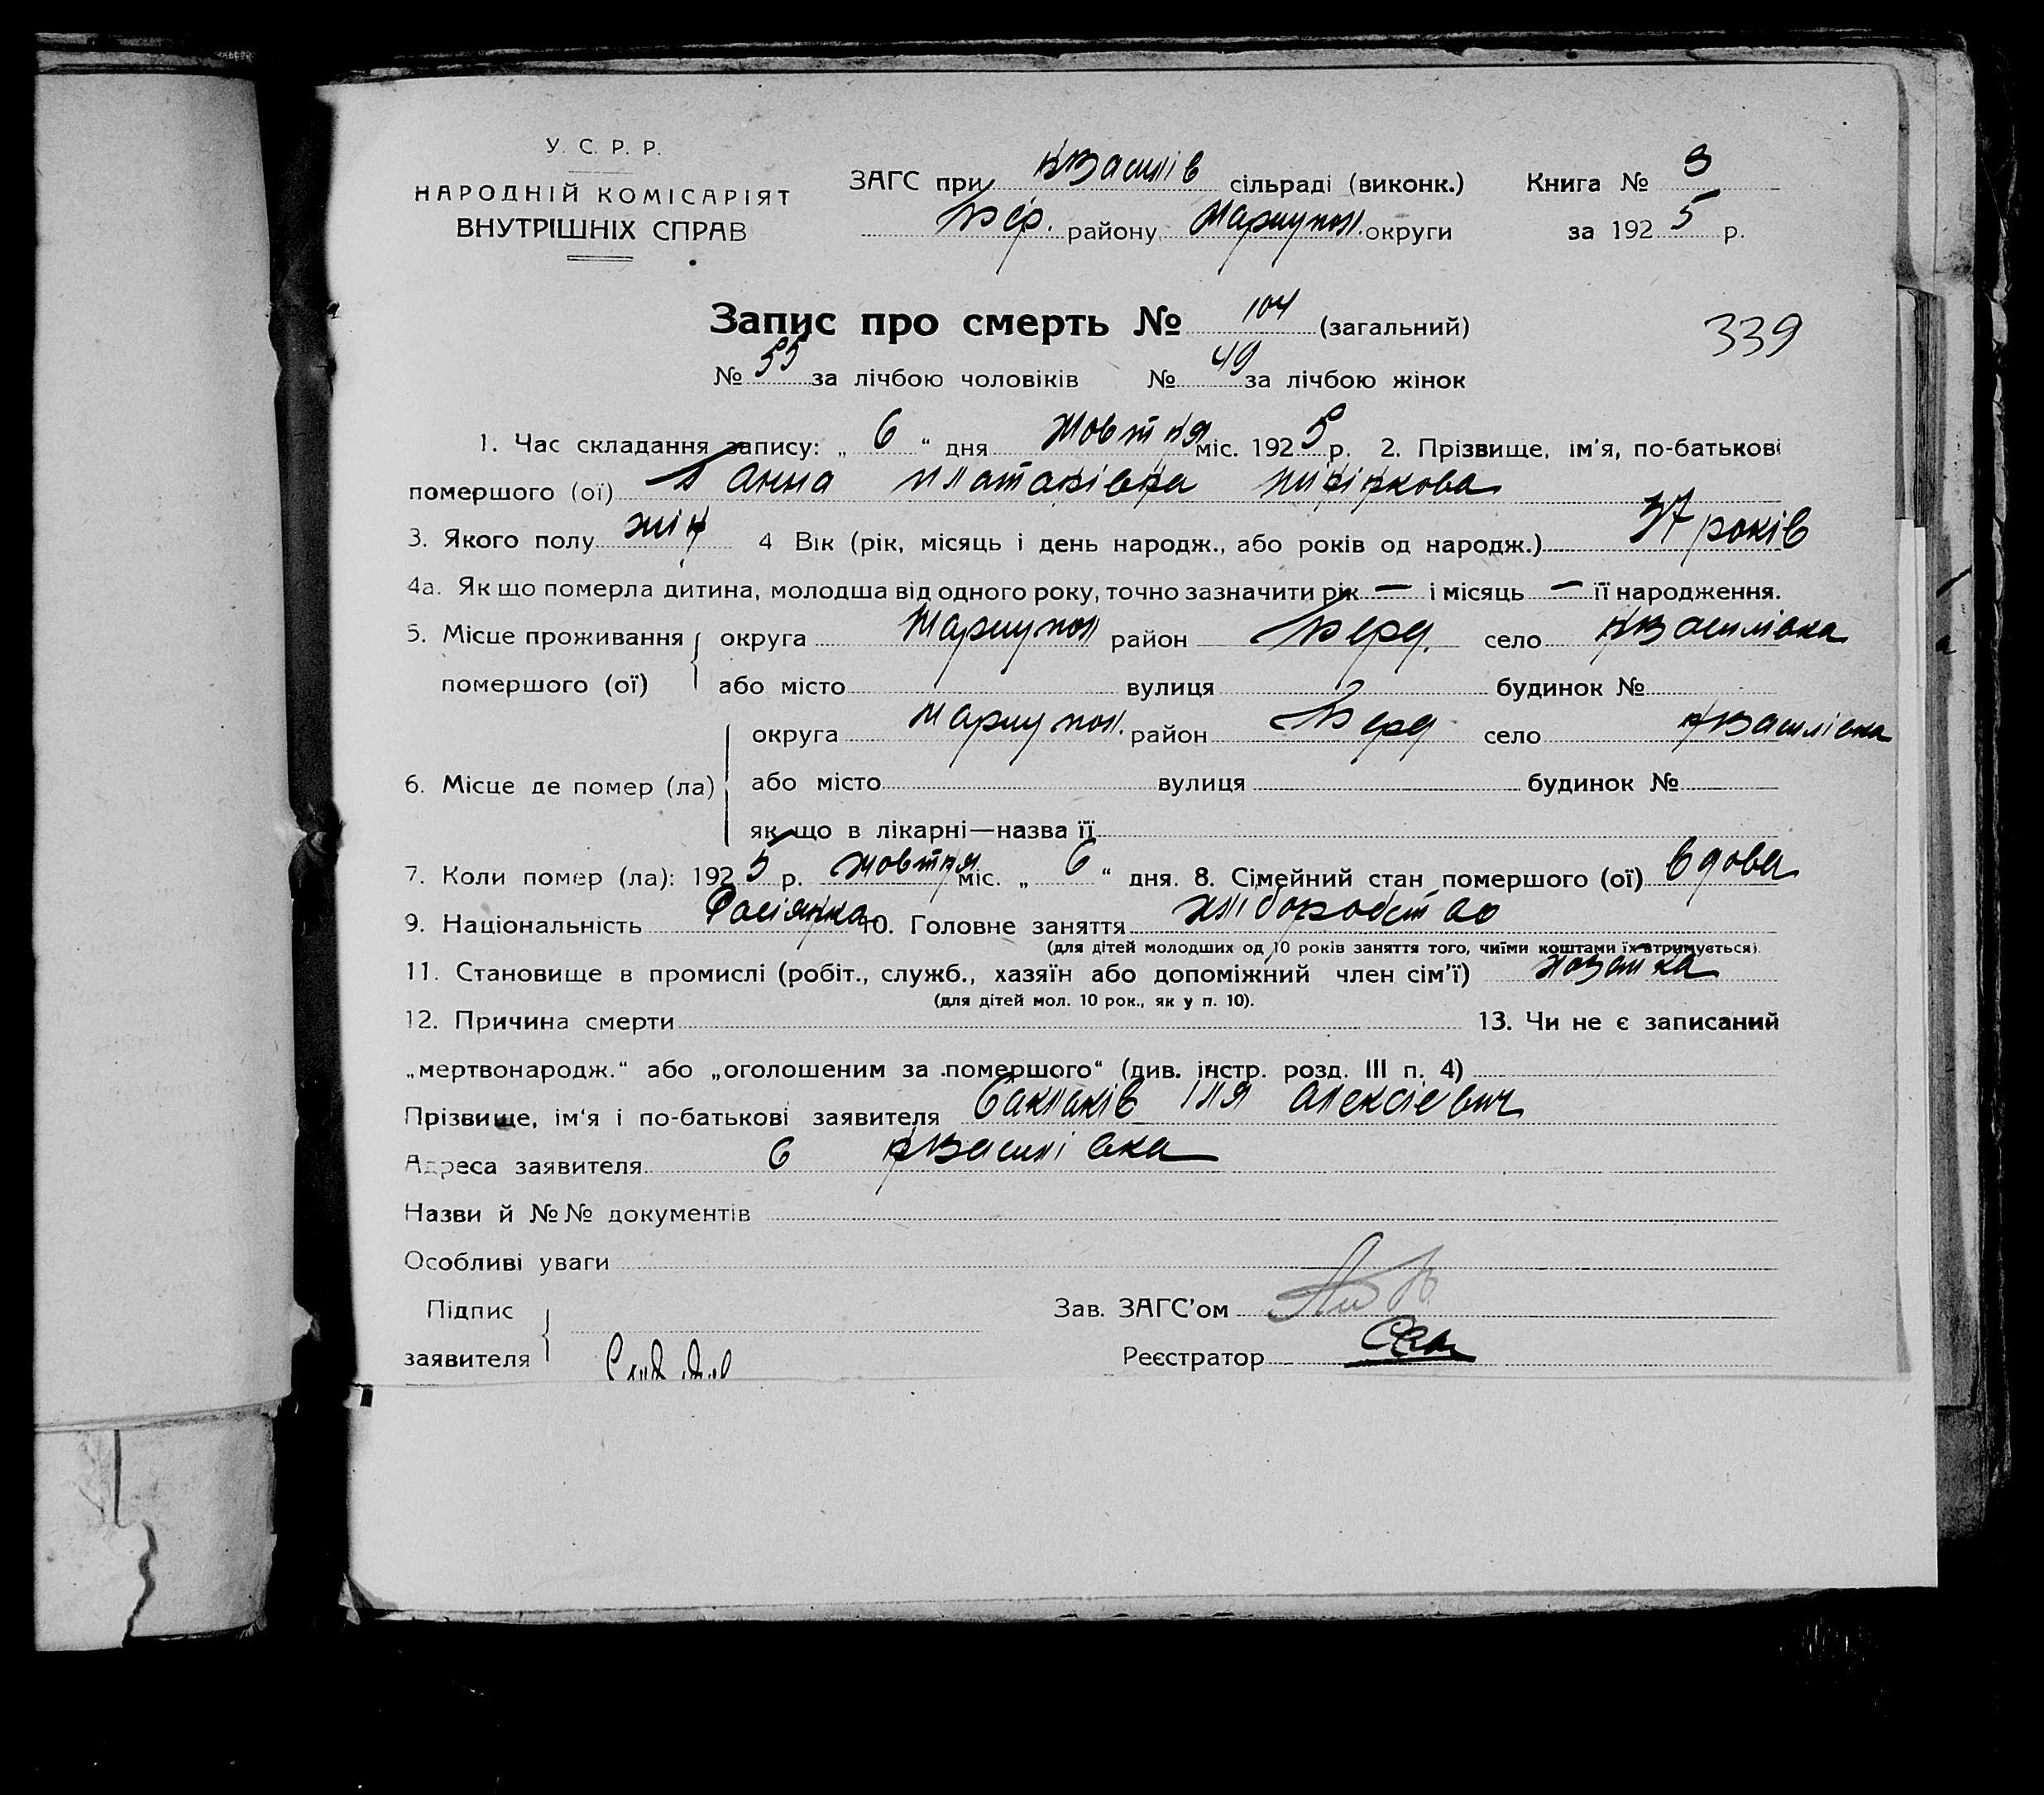 У. С. Р. Р.
НАРОДНІЙ КОМІСАРІЯТ
ВНУТРІШНІХ СПРАВ
ЗАГС при НВасилів сільраді (виконк.) Книга № 3
Бер. району Мариупол. округи за 1925 р.
Запис про смерть № 104 (загальний)
339
№ 55 за лічбою чоловіків № 49 за лічбою жінок
1. Час складання запису: „ 6 “ дня Жовтня міс. 1925 р. 2. Прізвище, ім'я, по-батькові
помершого (ої) Анна
3. Якого полу жін 4 Вік (рік, місяць і день народж., або років од народж.) 37 років
4а. Як що померла дитина, молодша від одного року, точно зазначити рік — і місяць — її народження.
5. Місце проживання округа Мариупол район Берд. село НВасилівка
помершого (ої) або місто вулиця будинок №
округа Мариупол. район Берд село НВасилівка
6. Місце де помер (ла) або місто вулиця будинок №
як що в лікарні—назва її
7. Коли помер (ла): 1925 р. жовтня міс. „ 6 “ дня. 8. Сімейний стан помершого (ої) вдова
9. Національність Росіянка 10. Головне заняття хліборобство
(для дітей молодших од 10 років заняття того, чиїми коштами їх втримується).
11. Становище в промислі (робіт., служб., хазяїн або допоміжний член сім'ї) хозяйка
(для дітей мол. 10 рок., як у п. 10).
12. Причина смерти 13. Чи не є записаний
„мертвонародж.“ або „оголошеним за помершого“ (див. інстр. розд. III п. 4)
Прізвище, ім'я і по-батькові заявителя Баклаків Іля Алексієвич
Адреса заявителя в НВасилівка
Назви й №№ документів
Особливі уваги
Підпис Зав. ЗАГС'ом
заявителя Реєстратор